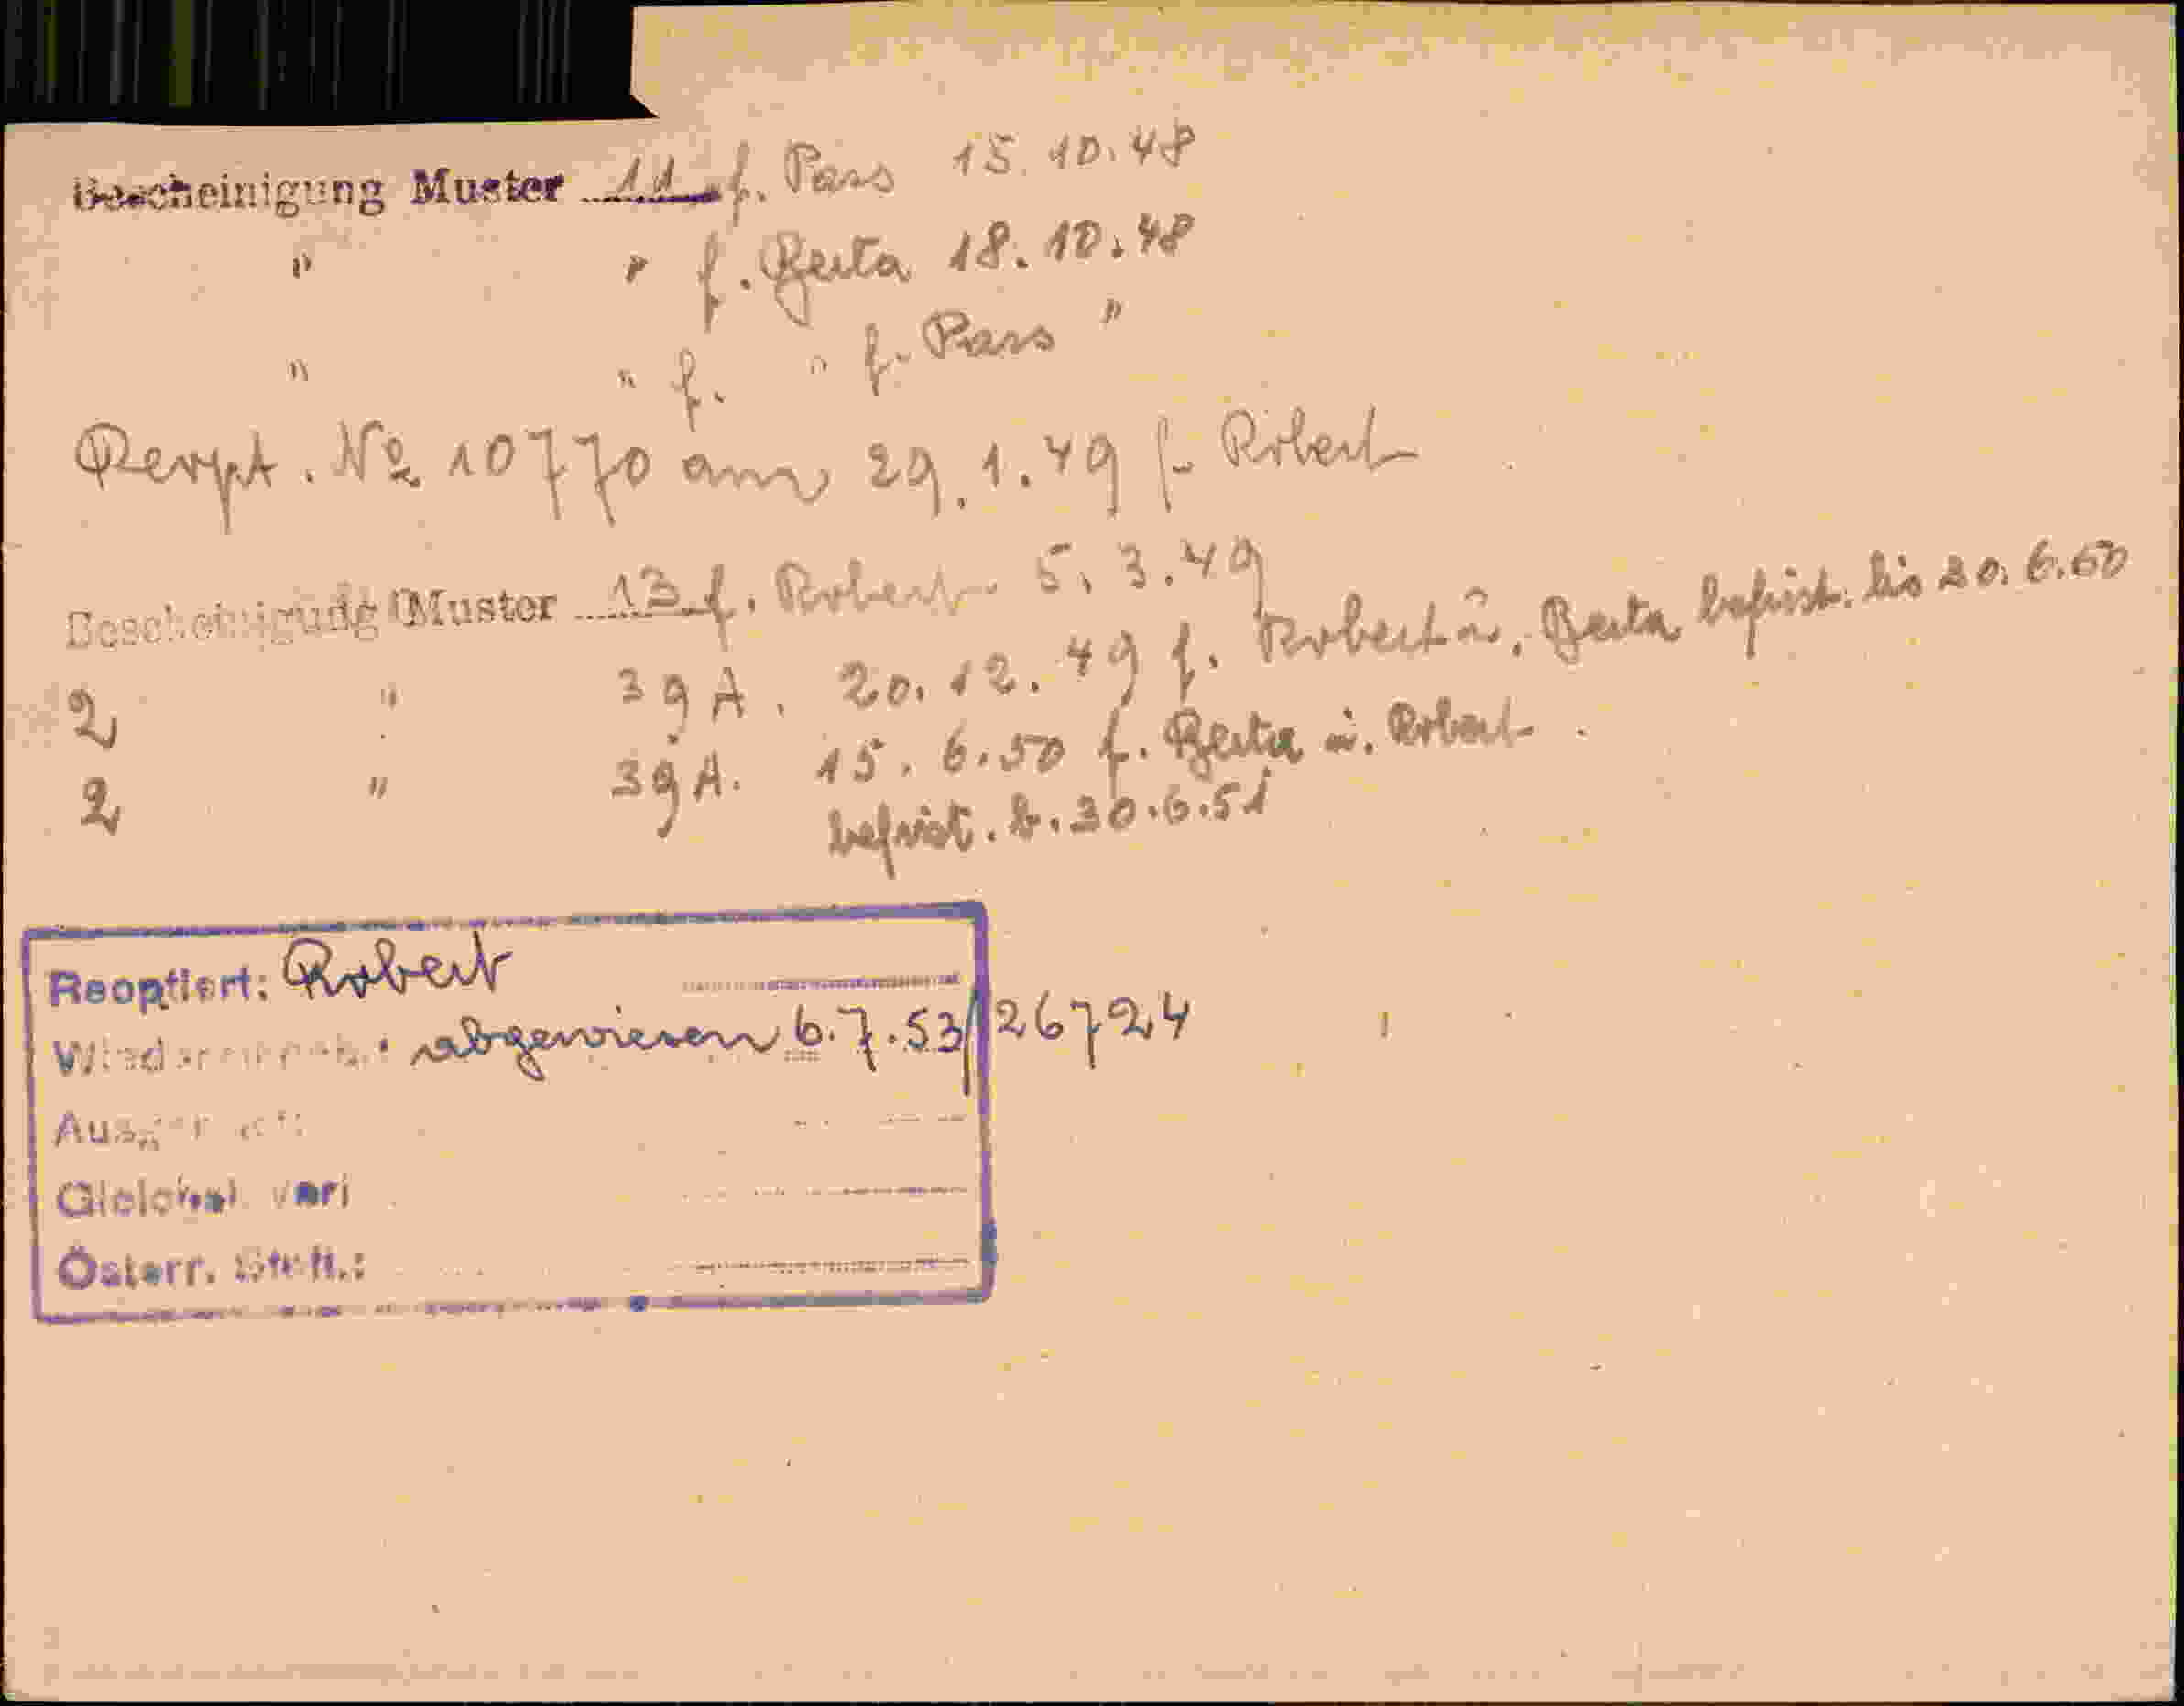 Bescheinigung Muster 11 f. Pass 15.10.48
" " f. Berta 18.10.48
" " f. " f. Pass "
Rexpt. № 10770 am 29.1.49 f. Robert
Bescheinigung Muster 13 f. Robert 5.3.49
2 " 39A. 20.12.49 f. Robert u. Berta befrist. bis 20.6.50
2 " 39A. 15.6.50 f. Berta u. Robert
befrist. b. 30.6.51
Reoptiert: Robert
abgewiesen 6.7.53/26724
Österr.